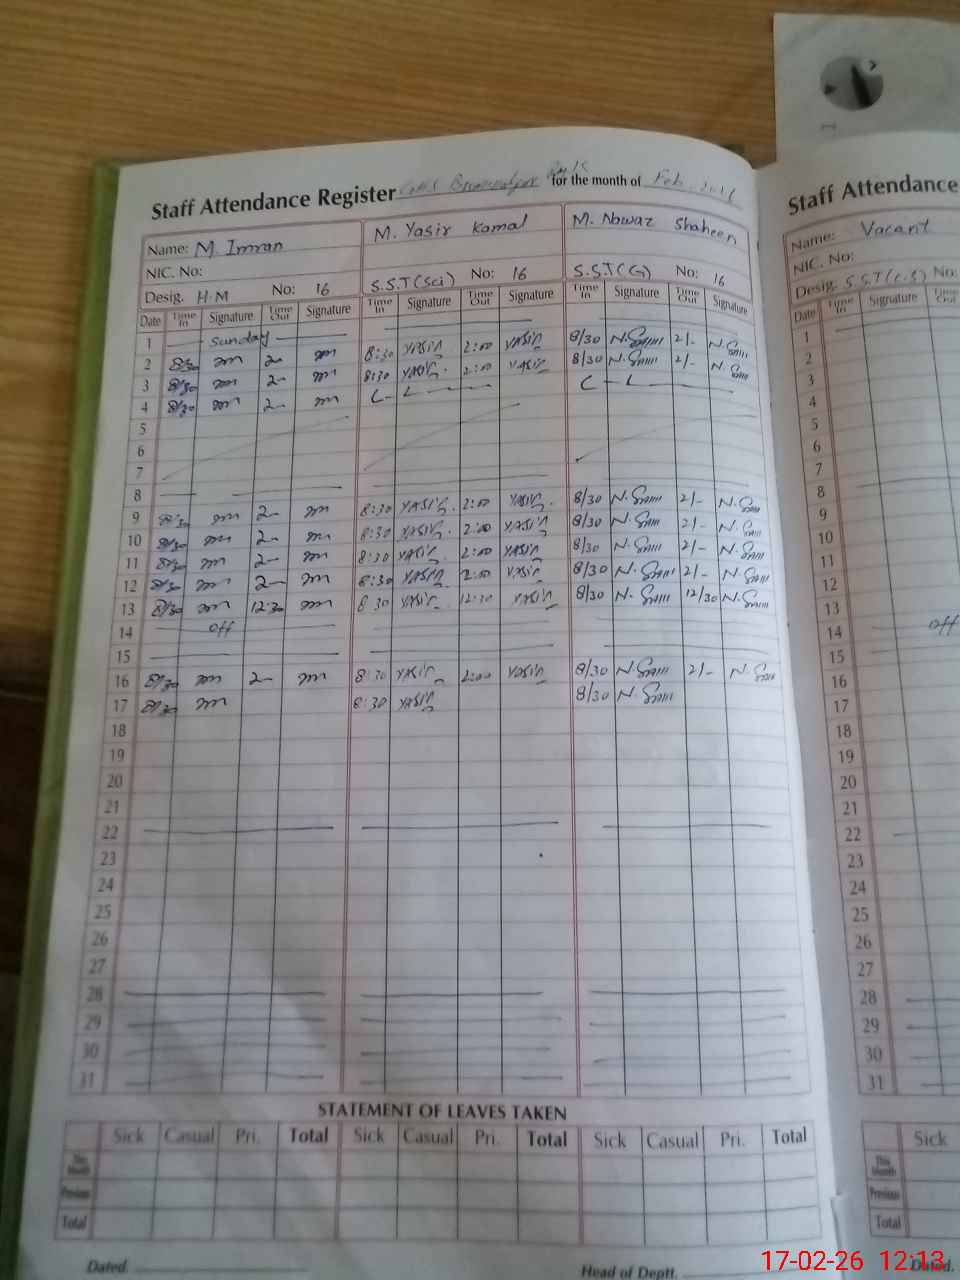 Staff Attendance Register for the month of Feb. 2026
Name: M. Imran M. Yasir Kamal M. Nawaz Shaheen
NIC. No:
Desig. H.M No: 16 S.S.T (Sci) No: 16 S.S.T (G) No: 16
Date Time In Signature Time Out Signature Time In Signature Time Out Signature Time In Signature Time Out Signature
1 Sunday
2 8/30 2- 8:30 YASIR 2:00 YASIR 8/30 2/-
3 8/30 2- 8:30 YASIR 2:00 YASIR 8/30 2/-
4 8/30 2- C-L C-L
5
6
7
8
9 8/30 2- 8:30 YASIR 2:00 YASIR 8/30 2/-
10 8/30 2- 8:30 YASIR 2:00 YASIR 8/30 2/-
11 8/30 2- 8:30 YASIR 2:00 YASIR 8/30 2/-
12 8/30 2- 8:30 YASIR 2:00 YASIR 8/30 2/-
13 8/30 12:30 8:30 YASIR 12:30 YASIR 8/30 12/30
14 off
15
16 8/30 2- 8:30 YASIR 2:00 YASIR 8/30 2/-
17 8/30 8:30 YASIR 8/30
18
19
20
21
22
23
24
25
26
27
28
29
30
31
STATEMENT OF LEAVES TAKEN
Sick Casual Pri. Total Sick Casual Pri. Total Sick Casual Pri. Total
This Month
Previous
Total
Dated. Head of Deptt.
Staff Attendance
Name: Vacant
NIC. No:
Desig. S.S.T (C.S) No:
Date Time In Signature Time Out
1
2
3
4
5
6
7
8
9
10
11
12
13
14 off
15
16
17
18
19
20
21
22
23
24
25
26
27
28
29
30
31
Sick
This Month
Previous
Total
Dated.
17-02-26 12:13